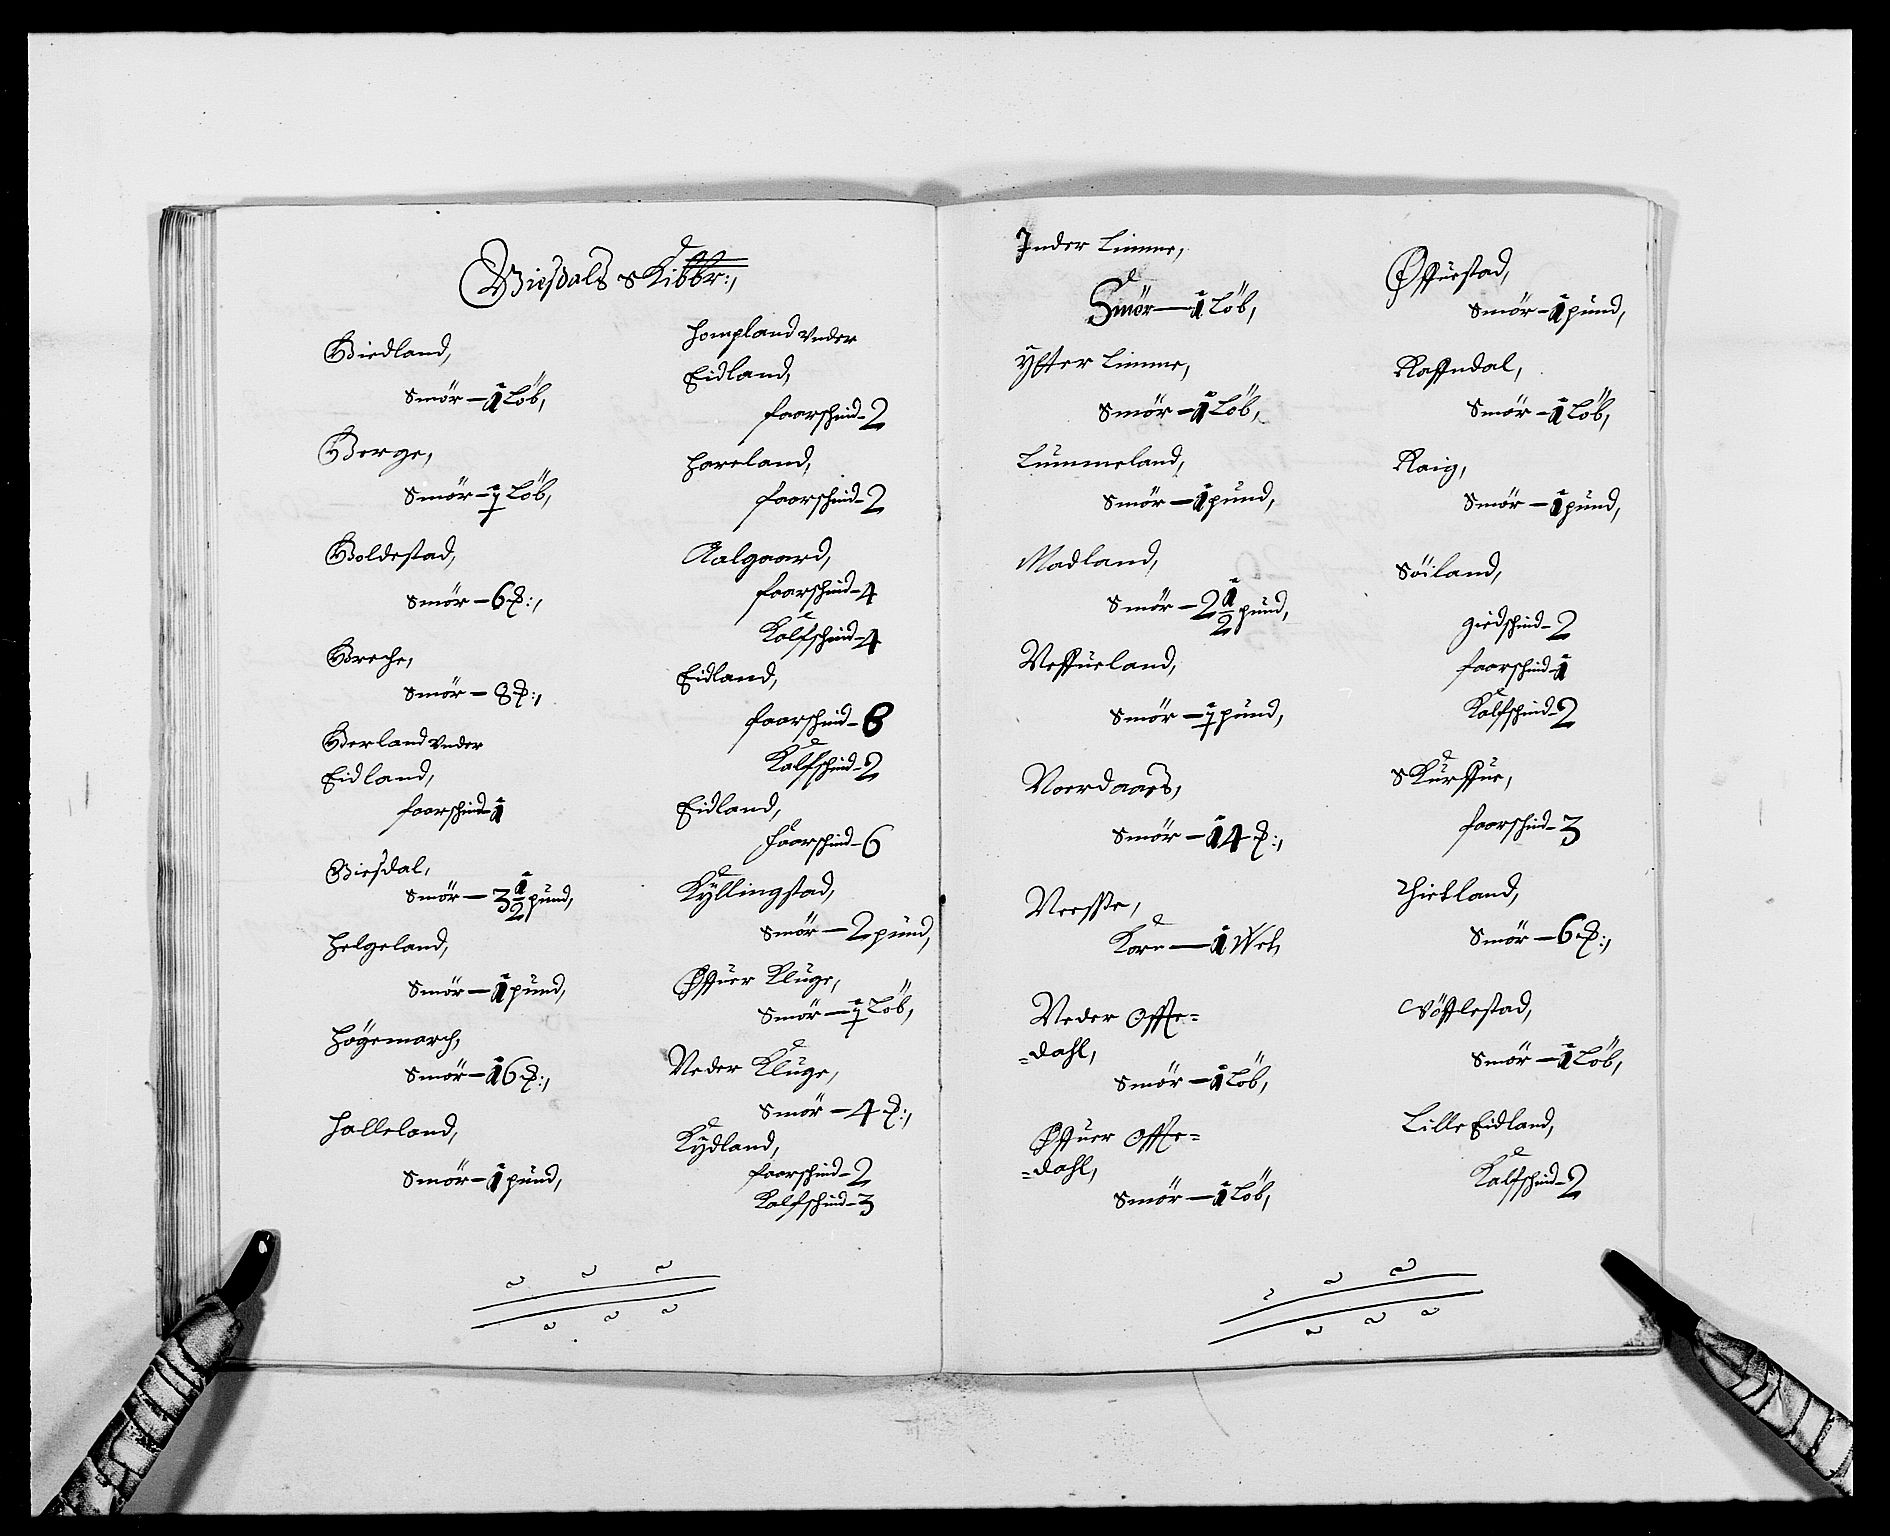 Giesdals Skibbr:,
Giedland,
Smör — 1 Löb,
Berge,
Smör — ½ Löb,
Boldestad,
Smör — 6 ℔:,
Breche,
Smör — 8 ℔:,
Berland under
Eidland,
faarschind — 1
Giesdal,
Smör — 3½ pund,
Helgeland,
Smör — 1 pund,
Högemarch,
Smör — 16 ℔:,
Halleland,
Smör — 1 pund,
Hompland under
Eidland,
faarschind — 2
Hareland,
faarschind — 2
Aalgaard,
faarschind — 4
Kalfschind — 4
Eidland,
faarschind — 8
Kalfschind — 2
Eidland,
faarschind — 6
Kyllingstad,
Smör — 2 pund,
Øffuer Kluge,
Smör — ½ Löb,
Neder Kluge,
Smör — 4 ℔:,
Kydland,
faarschind — 2
Kalfschind — 3
Inder Limme,
Smör — 1 Löb,
Ytter Limme,
Smör — 1 Löb,
Lummeland,
Smör — 1 pund,
Madland,
Smör — 2½ pund,
Neffueland,
Smör — ½ pund,
Noerdaaes,
Smör — 14 ℔:,
Neesse,
Korn — 1 Weh,
Neder Offte=
=dahl,
Smör — 1 Löb,
Øffuer Offte=
=dahl,
Smör — 1 Löb,
Øffuestad,
Smör — 1 pund,
Raffndal,
Smör — 1 Löb,
Raig,
Smör — 1 pund,
Söiland,
giedschind — 2
faarschind — 1
Kalfschind — 2
Skurffue,
faarschind — 3
Thietland,
Smör — 6 ℔:,
Vöfflestad,
Smör — 1 Löb,
Lille Eidland,
Kalfschind — 2